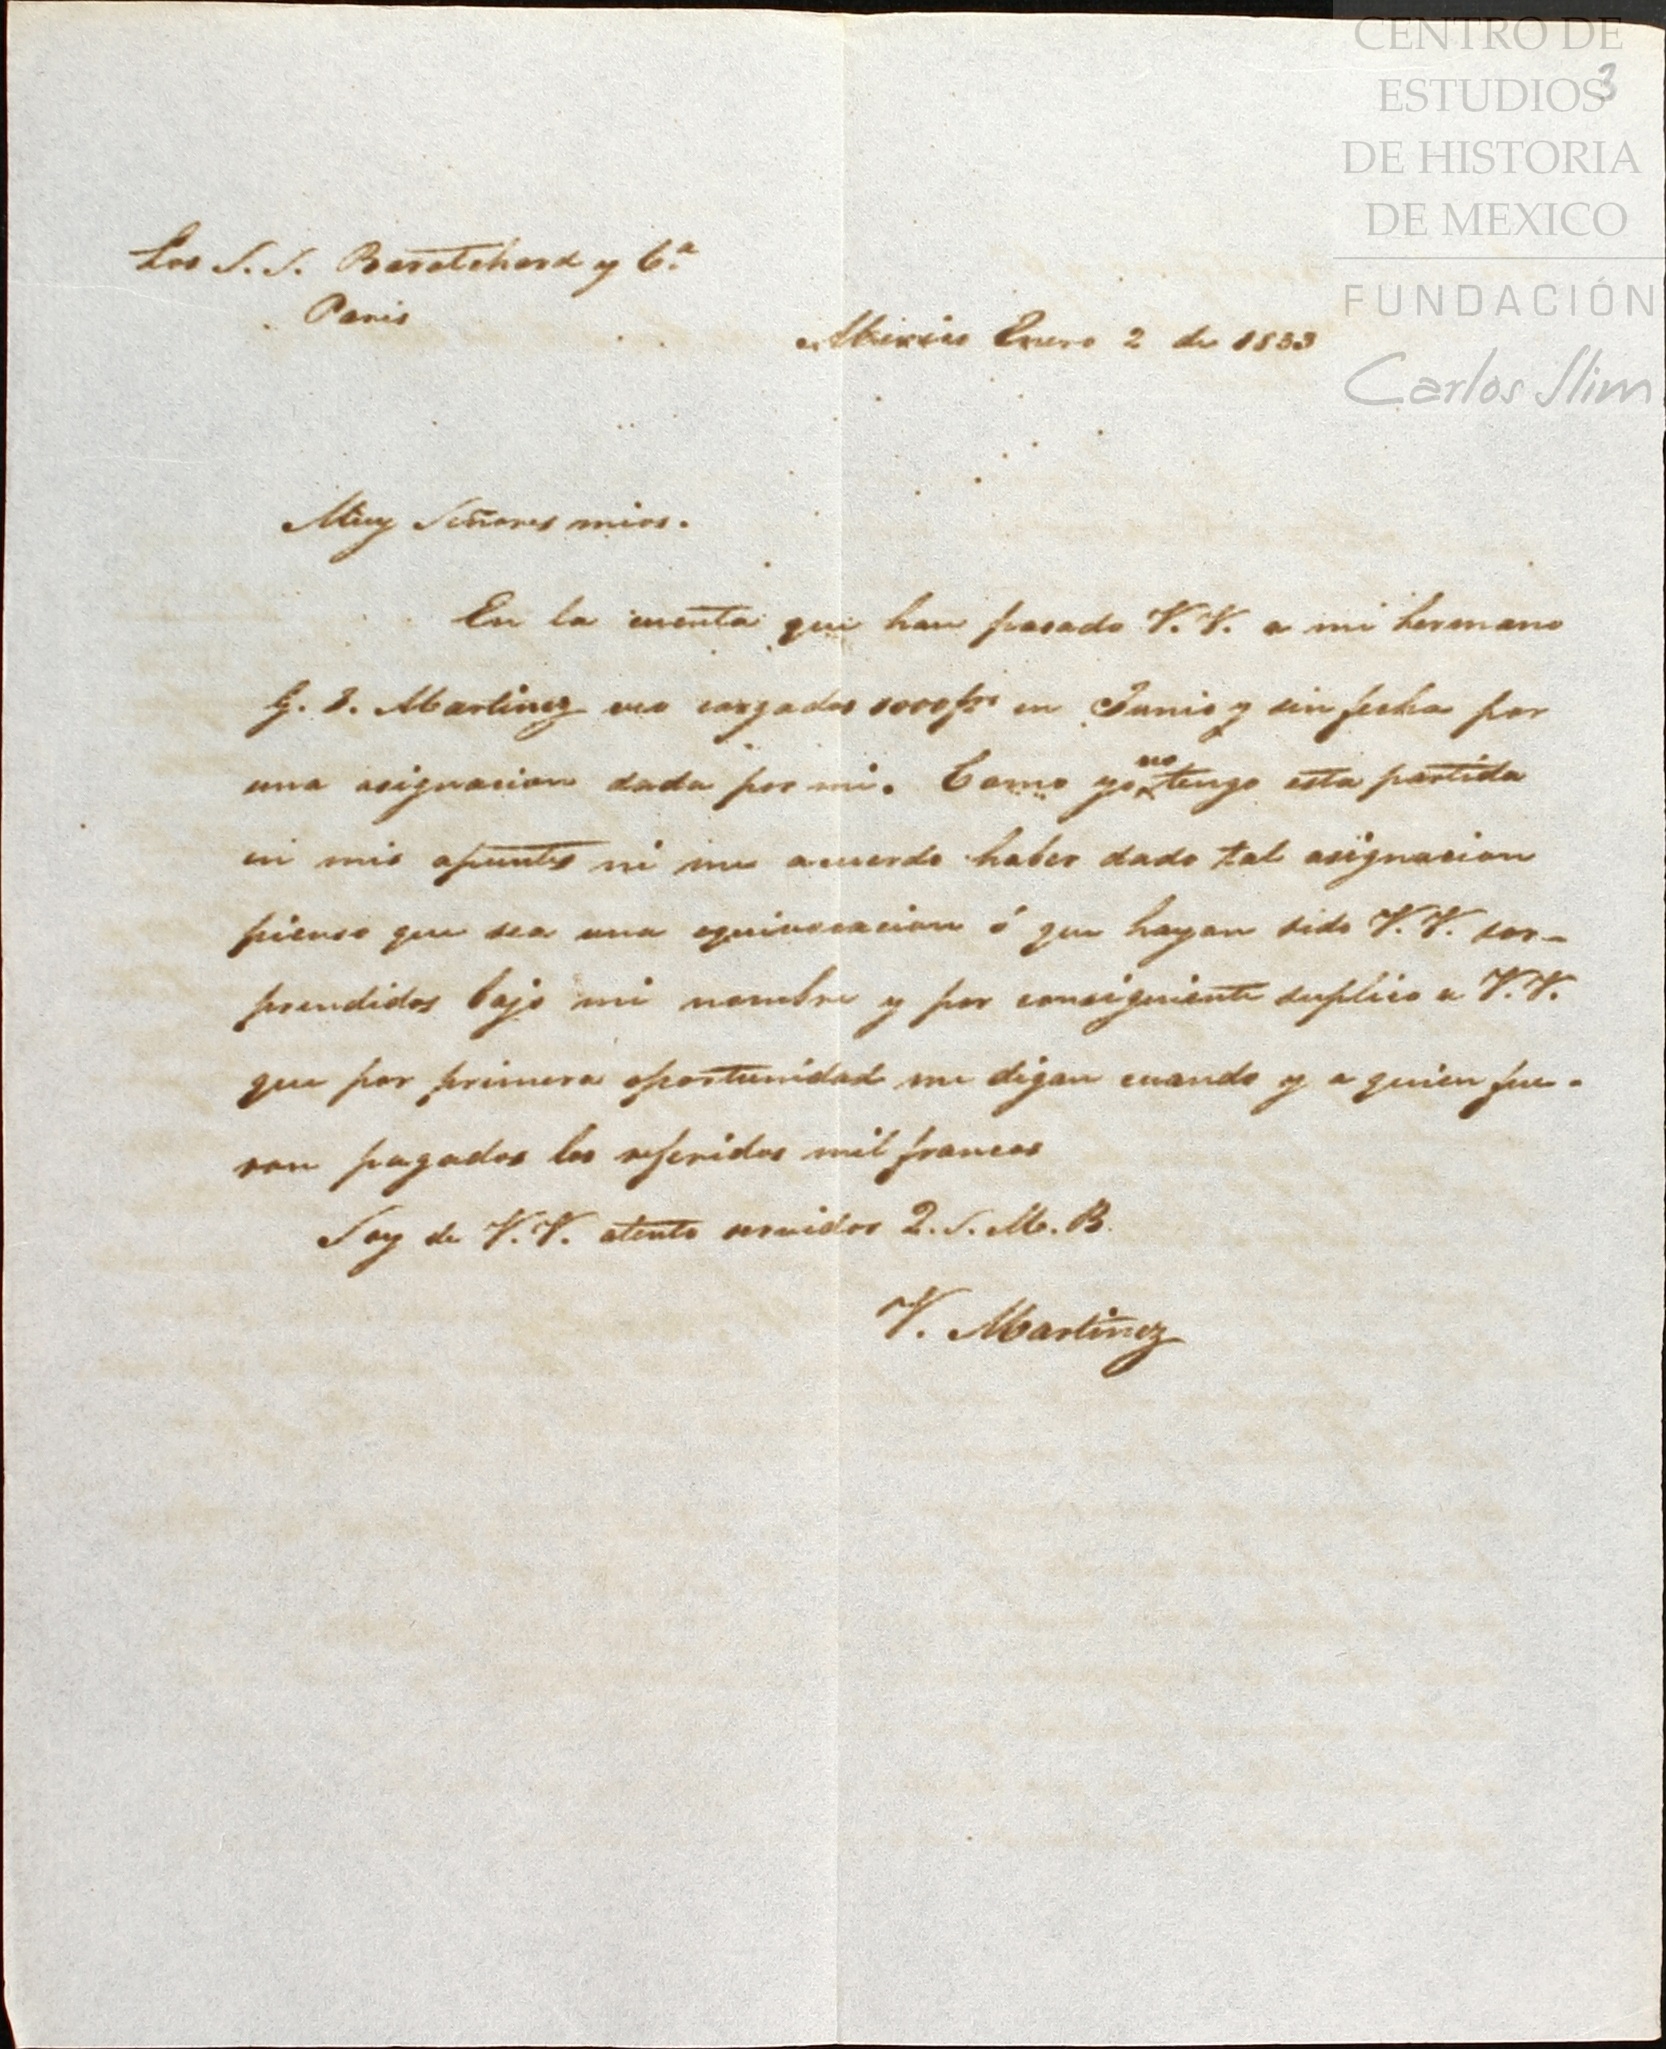 CENTRO DE
ESTUDIOS
3
DE HISTORIA
DE MEXICO
FUNDACIÓN
Carlos Slim
Los S.S. Baratchard y Cª
Paris
Mexico Enero 2 de 1833
Muy Señores mios.
En la cuenta que han pasado V.V. a mi hermano
G. J. Martinez veo cargados 1000 frs en Junio y sin fecha por
una asignacion dada por mi. Como yo no tengo esta partida
en mis apuntes ni me acuerdo haber dado tal asignacion
pienso que sea una equivocacion ó que hayan sido V.V. sor-
prendidos bajo mi nombre y por consiguiente suplico a V.V.
que por primera oportunidad me digan cuando y a quien fue-
ron pagados los referidos mil francos
Soy de V.V. atento servidor Q.S.M.B.
V. Martinez